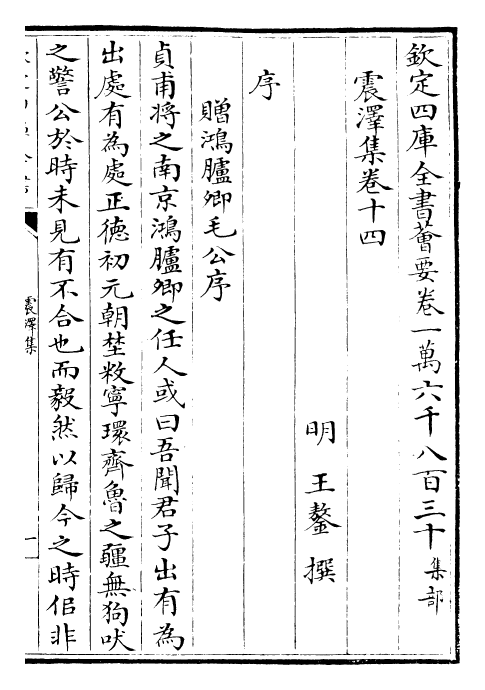 欽定四庫全書薈要卷一萬六千八百三十集部
震澤集卷十四
明 王鏊 撰
序
贈鴻臚卿毛公序
貞甫將之南京鴻臚卿之任人或曰吾聞君子出有為
出處有為處正德初元朝埜敉寧環齊魯之疆無狗吠
之警公於時未見有不合也而毅然以歸今之時佀非
震澤集
一